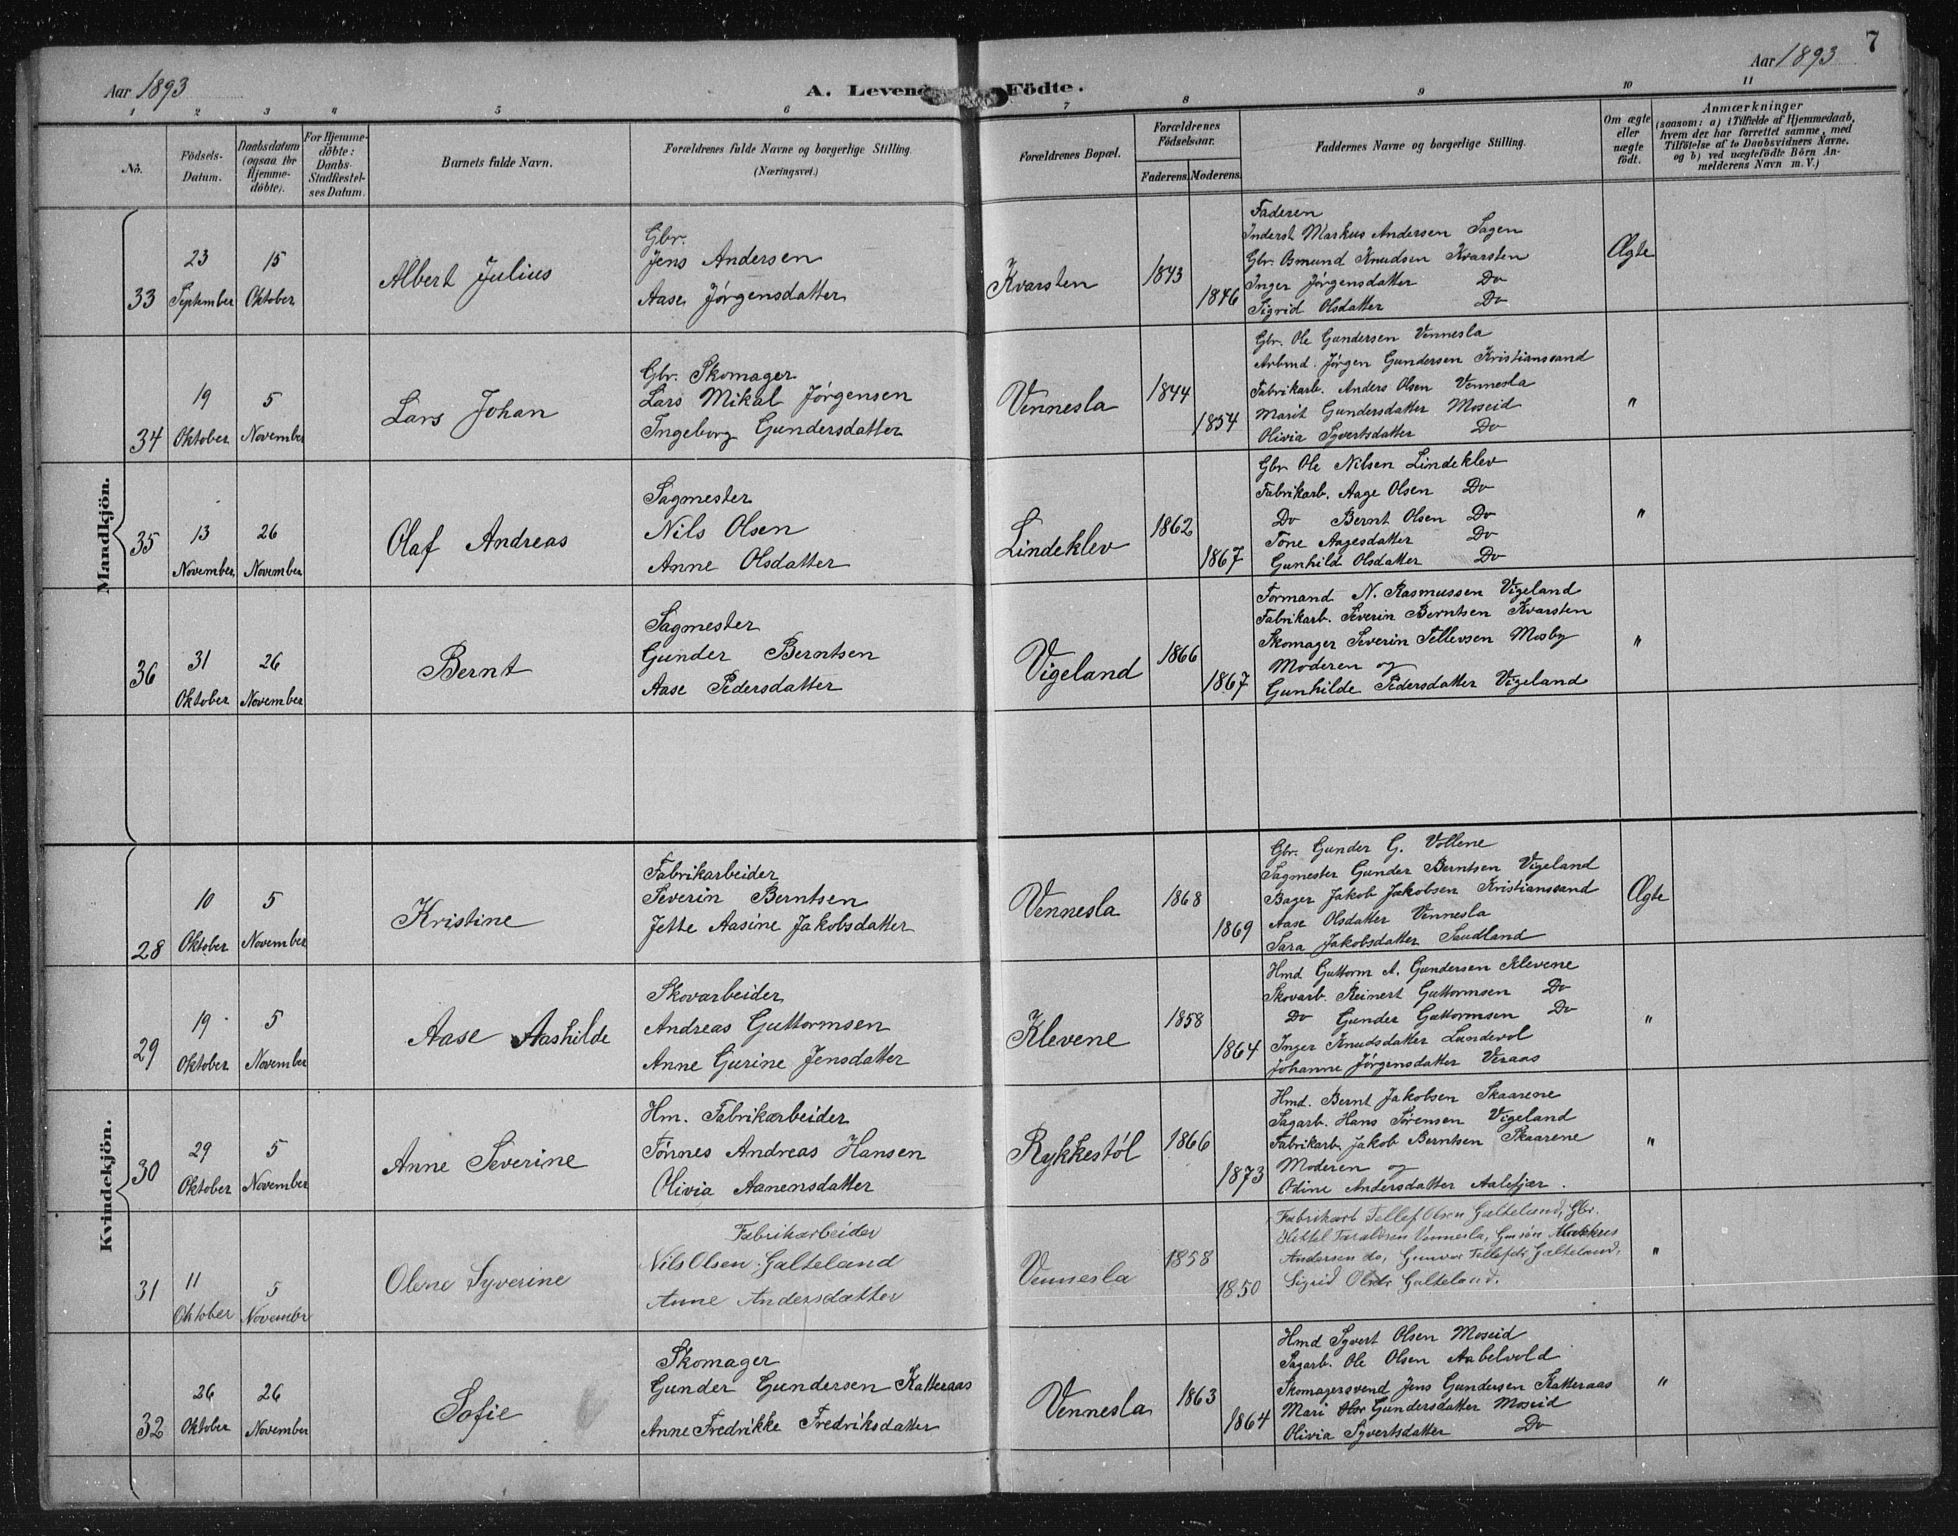 Aar 1893
A. Levende Födte.
Aar 1893
7
1 2 3 4 5 6 7 8 9 10 11
No.
Födsels-
Datum.
Daabsdatum
(ogsaa for
Hjemme-
döbte).
For Hjemme-
döbte:
Daabs-
Stadfæstel-
ses Datum.
Barnets fulde Navn.
Forældrenes fulde Navne og borgerlige Stilling.
(Næringsvei.)
Forældrenes Bopæl.
Forældrenes
Födselsaar.
Faderens. Moderens.
Faddernes Navne og borgerlige Stilling.
Om ægte
eller
uægte
födt.
Anmærkninger
(saasom: a) i Tilfælde af Hjemmedaab,
hvem der har forrettet samme, med
Tilföielse af to Daabsvidners Navne,
og b) ved uægtefödte Börn An-
melderens Navn m. V.)
Mandkjön.
33
23
September
15
Oktober
Albert Julius
Gbr.
Jens Andersen
Aase Jørgensdatter
Kvarsten
1843
1846
Faderen
Inderst Markus Andersen Sagen
Gbr. Osmund Knudsen Kvarsten
Inger Jørgensdatter Do
Sigrid Olsdatter Do
Ægte
34
19
Oktober
5
November
Lars Johan
Gbr. Skomager
Lars Mikal Jørgensen
Ingeborg Gundersdatter
Vennesla
1844
1854
Gbr. Ole Gundersen Vennesla
Arbmd. Jørgen Gundersen Kristianssand
Fabrikarb. Anders Olsen Vennesla
Marit Gundersdatter Moseid
Olivia Syvertsdatter Do
"
35
13
November
26
November
Olaf Andreas
Sagmester
Nils Olsen
Anne Olsdatter
Lindeklev
1862
1867
Gbr Ole Nilsen Lindeklev
Fabrikarb. Aage Olsen Do
Do Bernt Olsen Do
Tone Aagesdatter Do
Gunhild Olsdatter Do
"
36
31
Oktober
26
November
Bernt
Sagmester
Gunder Berntsen
Aase Pedersdatter
Vigeland
1866
1867
Formand N. Rasmussen Vigeland
Fabrikarb. Severin Berntsen Kvarsten
Skomager Severin Tellevsen Mosby
Moderen og
Gunhilde Pedersdatter Vigeland
"
Kvindekjön.
28
10
Oktober
5
November
Kristine
Fabrikarbeider
Severin Berntsen
Jette Aasine Jakobsdatter
Vennesla
1868
1869
Gbr. Gunder G. Vollene
Sagmester Gunder Berntsen Vigeland
Bager Jakob Jakobsen Kristianssand
Aase Olsdatter Vennesla
Sara Jakobsdatter Saudland
Ægte
29
19
Oktober
5
November
Aase Aashilde
Skovarbeider
Andreas Guttormsen
Anne Gurine Jensdatter
Klevene
1858
1864
Hmd Guttorm A. Gundersen Klevene
Skovarb. Reinert Guttormsen Do
Do Gunder Guttormsen Do
Inger Knudsdatter Lundevol
Johanne Jørgensdatter Veraas
"
30
29
Oktober
5
November
Anne Severine
Hm. Fabrikarbeider
Tønnes Andreas Hansen
Olivia Aanensdatter
Rykkestøl
1866
1873
Hmd. Bernt Jakobsen Skaarene
Sagarb. Hans Sørensen Vigeland
Fabrikarb. Jakob Berntsen Skaarene
Moderen og
Odine Andersdatter Aalefjær.
"
31
11
Oktober
5
November
Olene Syverine
Fabrikarbeider
Nils Olsen Galteland
Anne Andersdatter
Vennesla
1858
1850
Fabrikarb Tellef Olsen Galteland, Gbr.
Kittel Taraldsen Vennesla, Markus
Andersen do, Gunvor Tellefdr Galteland,
Sigrid Olsdr Galteland.
"
32
26
Oktober
26
November
Sofie
Skomager
Gunder Gundersen Katteraas
Anne Fredrikke Fredriksdatter
Vennesla
1863
1864
Hmd Syvert Olsen Moseid
Sagarb. Ole Olsen Aabelvold
Skomagersvend Jens Gundersen Katteraas
Mari Gundersdatter Moseid
Olivia Syvertsdatter Do
"